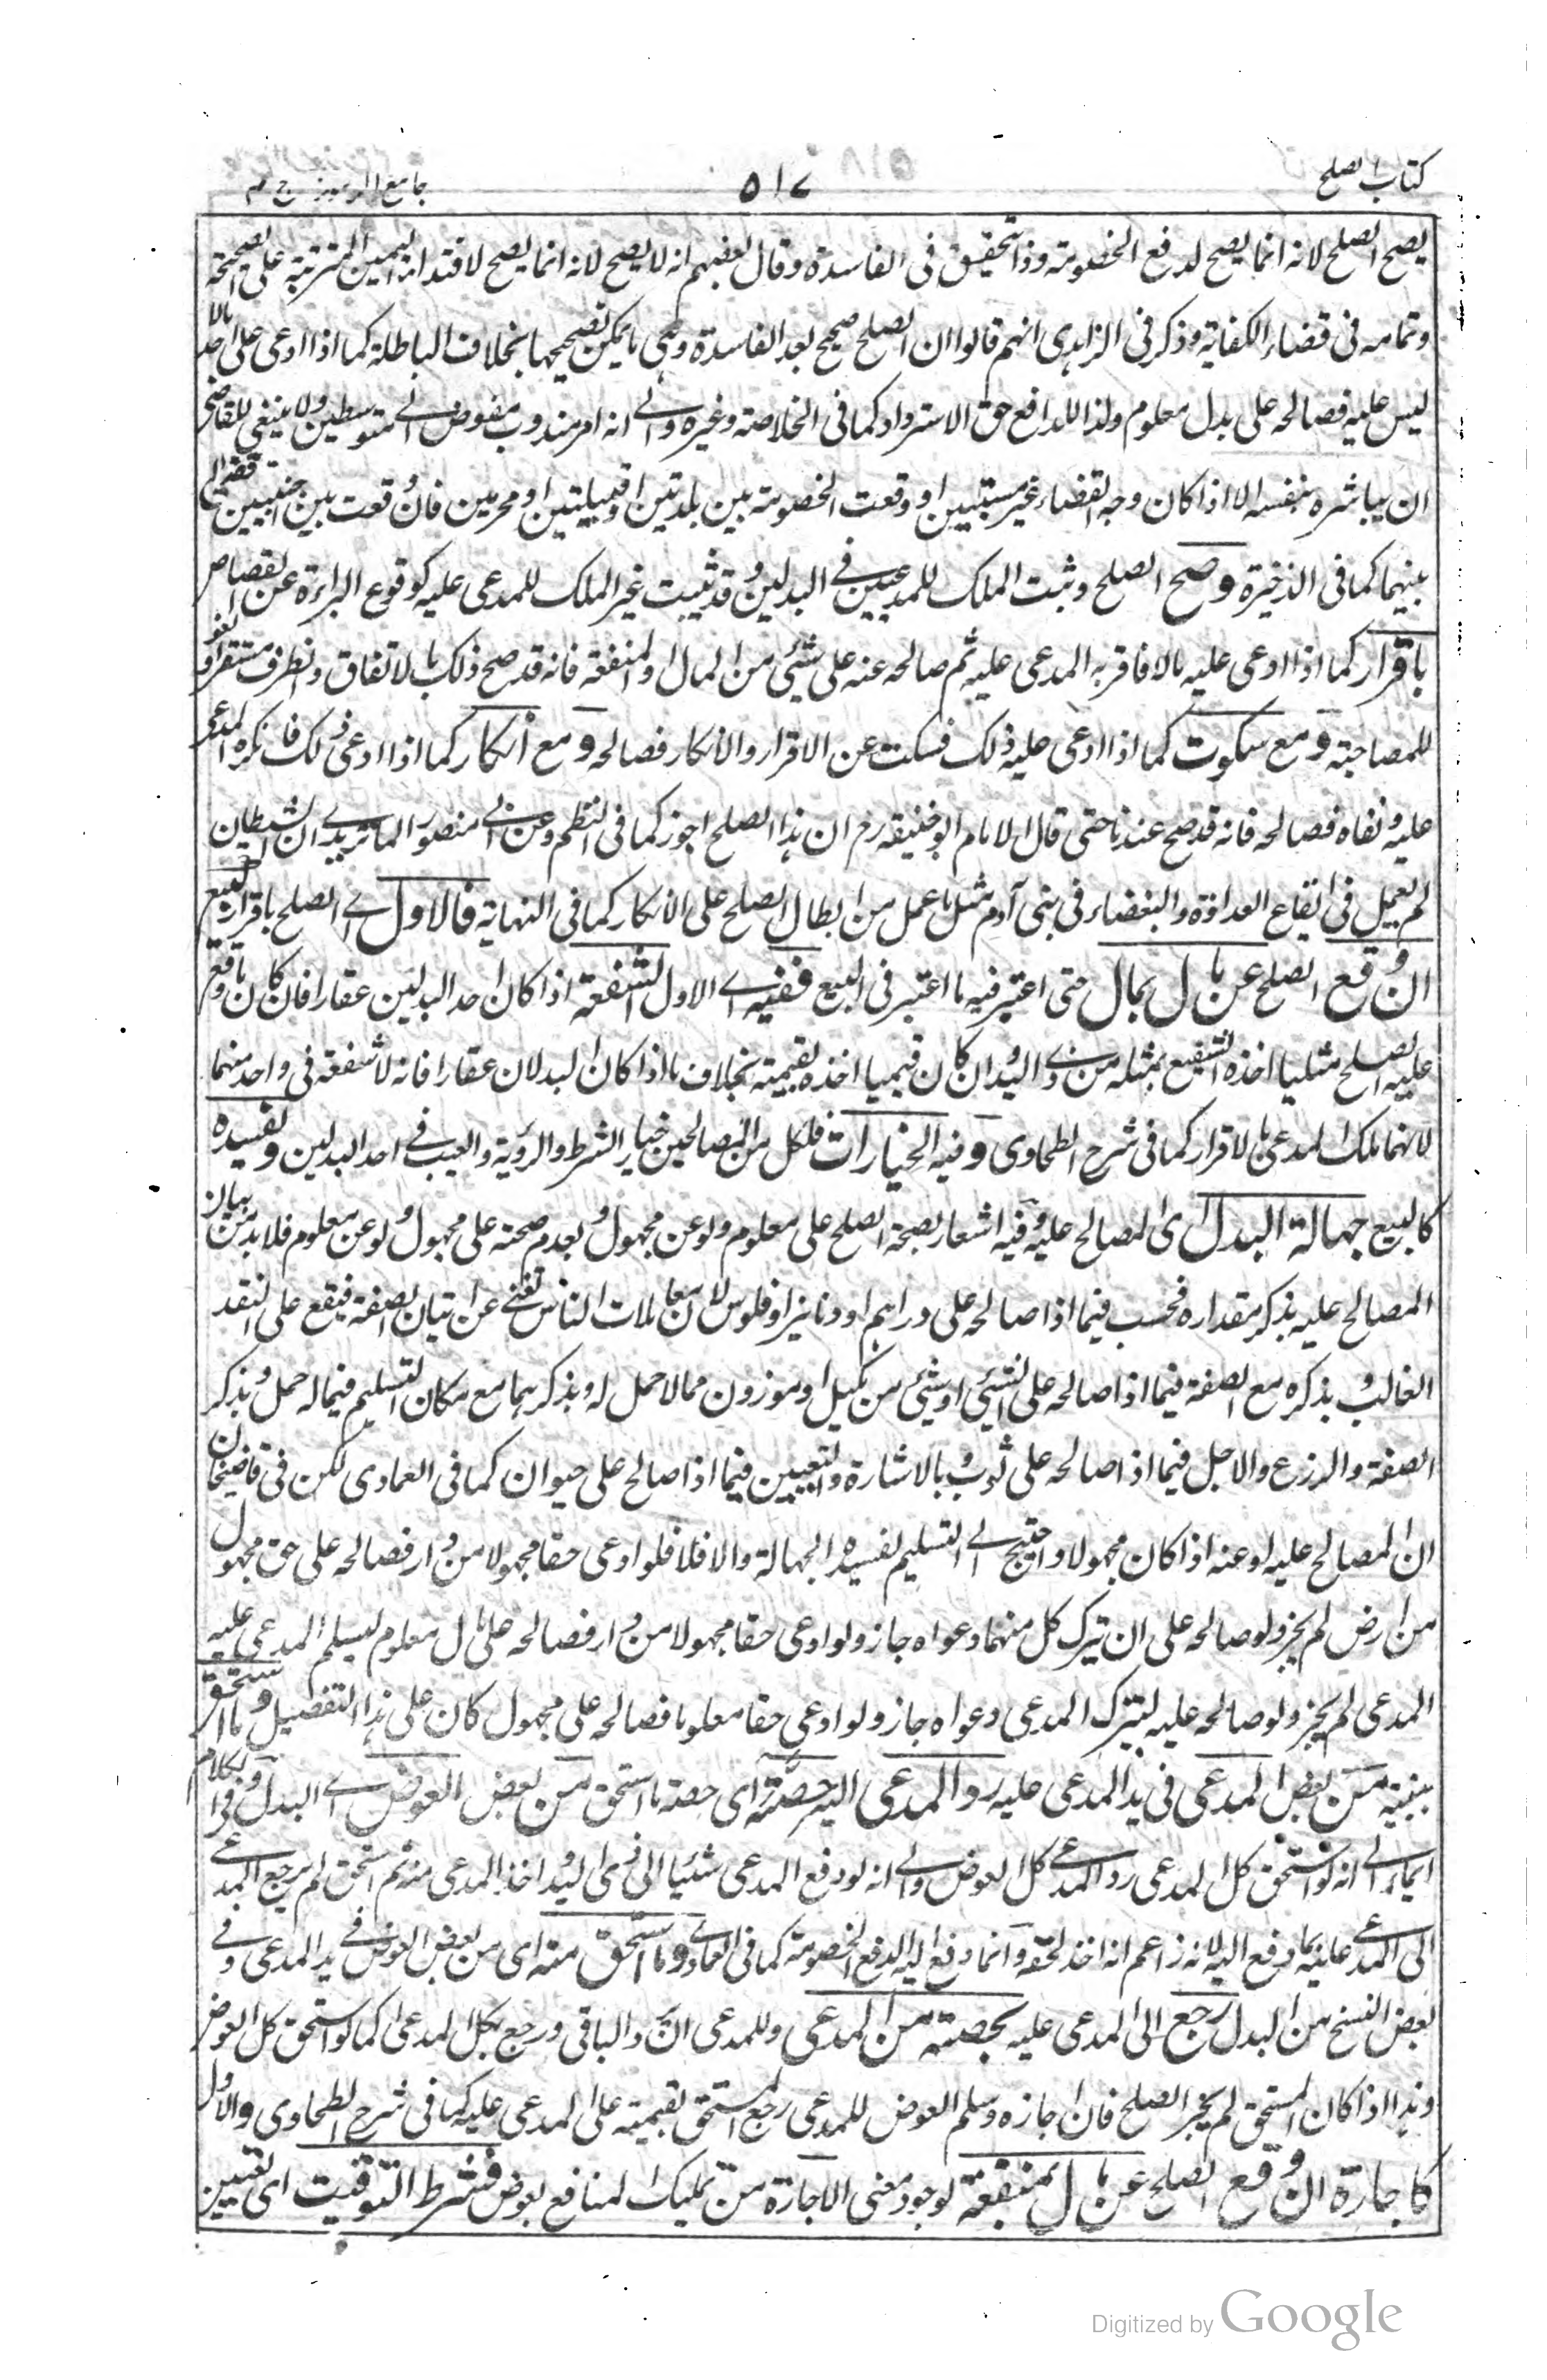 كتاب الصلح ٥١٧ جامع الرموز ج ٣
يصح الصلح لانه انما يصح لدفع الخصومة وذا تحقيق فى الفاسدة وقال بعضهم انه لا يصح لانه انما يصح لافتداء اليمين المترتبة على الصحيحة
وتمامه فى قضاء الكفاية وذكر فى الزاهدى انهم قالوا ان الصلح صحيح بعد الفاسدة وهى ما يمكن تصحيحها بخلاف الباطلة كما اذا ادعى على احد مالا
ليس عليه فصالحه على بدل معلوم ولذا للدافع حق الاسترداد كما فى الخلاصة وغيره والى انه امر مندوب مفوض الى متوسطين ولا ينبغى للقاضى
ان يباشره بنفسه الا اذا كان وجه القضاء غير مستبين او وقعت الخصومة بين بلدتين او قبيلتين او محرمين فان وقعت بين اجنبيين قضى
بينهما كما فى الذخيرة وصح الصلح وثبت الملك للمدعيين فى البدلين وقد ثبت غير الملك للمدعى عليه كوقوع البراءة عن القصاص
باقرار كما اذا ادعى عليه مالا فاقر به المدعى عليه ثم صالحه عنه على شيئ من المال او المنفعة فانه قد صح ذلك بالاتفاق والظرف مستقر او لغو
للمصاحبة ومع سكوت كما اذا ادعى عليه ذلك فسكت عن الاقرار والانكار فصالحه ومع انكار كما اذا ادعى ذلك فانكره المدعى
عليه ونفاه فصالحه فانه قد صح عندنا حتى قال الامام ابو حنيفة رح ان هذا الصلح اجوز كما فى النظم وعن ابى منصور الماتريدى ان الشيطان
لم يعمل فى ايقاع العداوة والبغضاء فى بنى آدم مثل ما عمل من ابطال الصلح على الانكار كما فى النهاية فالاول اى الصلح باقرار كالبيع
ان وقع الصلح عن مال بمال حتى اعتبر فيه ما اعتبر فى البيع ففيه اى الاول الشفعة اذا كان احد البدلين عقارا فان كان ما وقع
عليه الصلح مثليا اخذه الشفيع بمثله من ذى اليد وان كان قيميا اخذه بقيمته بخلاف ما اذا كان البدلان عقارا فانه لا شفعة فى واحد منهما
لانهما ملك المدعى بالاقرار كما فى شرح الطحاوى وفيه الخيارات فلكل من المصالحين خيار الشرط والرؤية والعيب فى احد البدلين ويفسده
كالبيع جهالة البدل اى المصالح عليه وفيه اشعار بصحة الصلح على معلوم ولو عن مجهول وبعدم صحته على مجهول ولو عن معلوم فلا بد من بيان
المصالح عليه بذكر مقداره فحسب فيما اذا صالحه على دراهم او دنانير او فلوس لان معاملات الناس تغنى عن اتيان الصفة فيقع على النقد
الغالب وبذكره مع الصفة فيما اذا صالحه على الشيئ او شيئ من مكيل او موزون مما لا حمل له وبذكرهما مع مكان التسليم فيما له حمل وبذكر
الصفة والذرع والاجل فيما اذا صالحه على ثوب وبالاشارة والتعيين فيما اذا صالح على حيوان كما فى العمادى لكن فى قاضيخان
ان المصالح عليه او عنه اذا كان مجهولا واحتيج الى التسليم لفسده الجهالة والا فلا فلو ادعى حقا مجهولا من دار فصالحه على حق مجهول
من ارض لم يجز ولو صالحه على ان يترك كل منهما دعواه جاز ولو ادعى حقا مجهولا من دار فصالحه على مال معلوم ليسلم المدعى عليه
المدعى لم يجز ولو صالحه عليه ليترك المدعى دعواه جاز ولو ادعى حقا معلوما فصالحه على مجهول كان على هذا التفصيل وما استحق
ببينة من بعض المدعى فى يد المدعى عليه رد المدعى اليه حصته اى حصة ما استحق من بعض العوض اى البدل وفى الكلام
ايماء الى انه لو استحق كل المدعى رد المدعى كل العوض والى انه لو دفع المدعى شئيا الى ذى اليد واخذ المدعى منه ثم استحق لم يرجع المدعى
الى المدعى عليه بما دفع اليه لانه زاعم انه اخذ لحقه وانما دفع اليه لدفع الخصومة كما فى العمادى وما استحق منه اى من بعض العوض فى يد المدعى وفى
بعض النسخ من البدل رجع الى المدعى عليه بحصته من المدعى وللمدعى ان يرد الباقى ورجع بكل المدعى كما لو استحق كل العوض
وهذا اذا كان المستحق لم يجز الصلح فان اجازه وسلم العوض للمدعى رجع المستحق بقيمته على المدعى عليه كما فى شرح الطحاوى والاول
كاجارة ان وقع الصلح عن مال بمنفعة لوجود معنى الاجارة من تمليك المنافع بعوض فشرط التوقيت اى تعيين
Digitized by Google